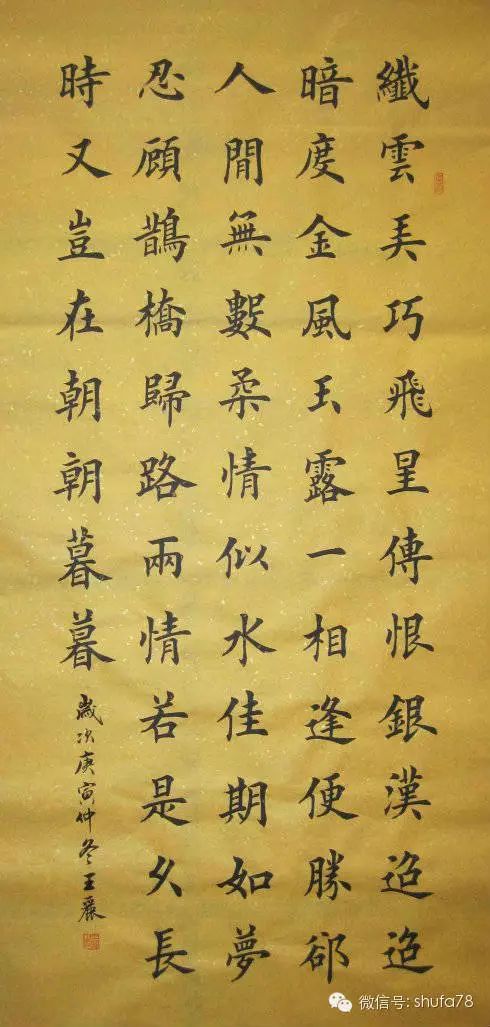 纖雲弄巧飛星傳恨銀漢迢迢
暗度金風玉露一相逢便勝卻
人間無數柔情似水佳期如夢
忍顧鵲橋歸路兩情若是久長
時又豈在朝朝暮暮
歲次庚寅仲冬王麗
微信号: shufa78